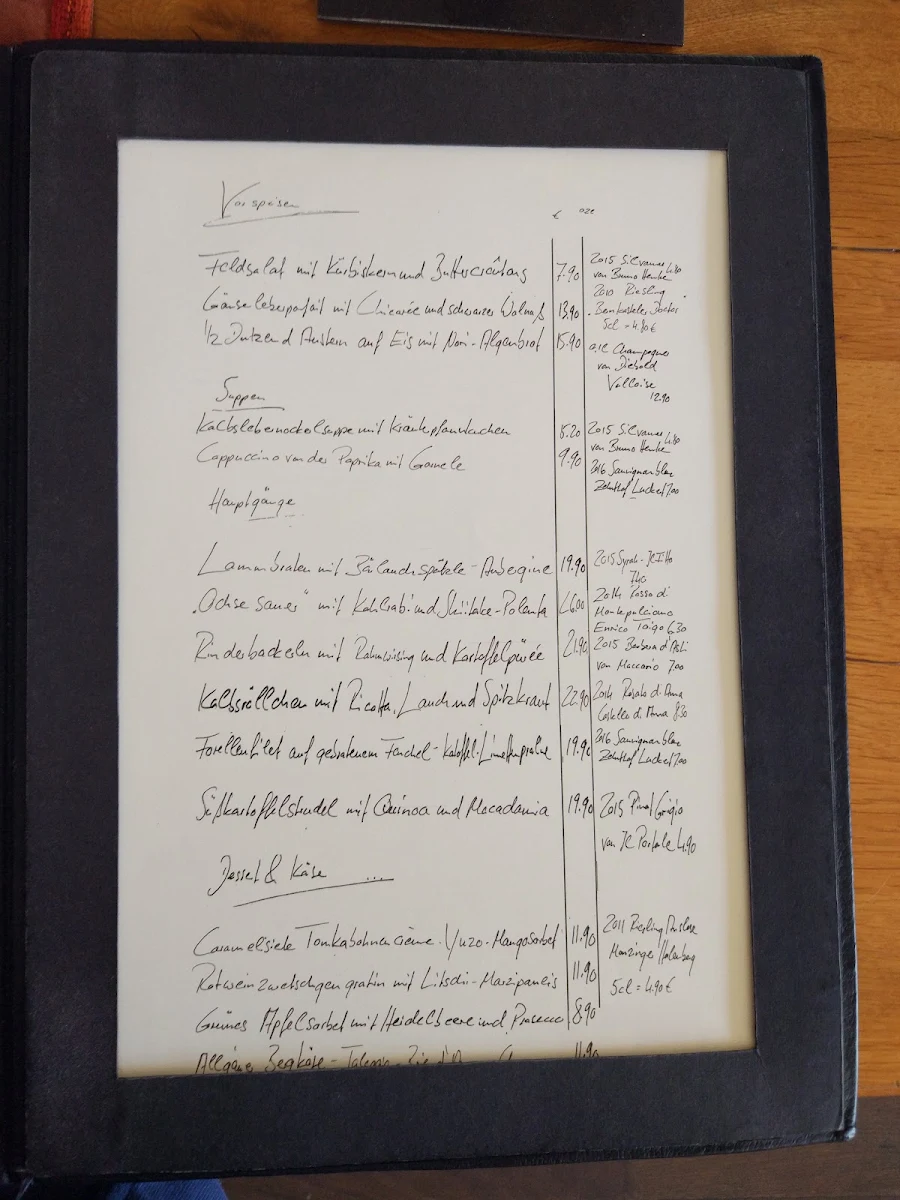 Vorspeisen
€ 0,2l
Feldsalat mit Kürbiskern und Buttercroûtons 7.90 2015 Silvaner 4.80
von Bruno
Gänseleberparfait mit Chicorée und schwarzer Walnuß 13.90 2010 Riesling
Bernkasteler Doctor
5cl = 4.80 €
1/2 Dutzend Austern auf Eis mit Nori-Algenbrot 15.90 0,1l Champagner
von Diebold
Vallois
12.90
Suppen
Kalbslebernockelsuppe mit Kräuterpfannkuchen 8.20 2015 Silvaner 4.80
von Bruno
Cappuccino von der Paprika mit Garnele 9.90 2016 Sauvignon blanc
Zehnthof Luckert 7.00
Hauptgänge
Lammbraten mit Bärlauchspätzle-Aubergine 19.90 2015 Syrah
"Ochse Sauer" mit Kohlrabi und Shiitake-Polenta 26.00 2014 Rosso di
Montepulciano
Enrico 6.30
Rinderbackerln mit Rahmwirsing und Kartoffelpürée 21.90 2015 Barbera d'Asti
von 7.00
Kalbsröllchen mit Ricotta, Lauch und Spitzkraut 22.90 2014 Rosato di Ama
Castello di Ama 8.30
Forellenfilet auf gebratenem Fenchel-Kartoffel-Limettenpraline 19.90 2016 Sauvignon blanc
Zehnthof Luckert 7.00
Süßkartoffelstrudel mit Quinoa und Macadamia 19.90 2015 Pinot Grigio
von Le Portale 4.90
Dessert & Käse ...
Caramelisierte Tonkabohnencrème-Yuzo-Mangosorbet 11.90 2011 Riesling Auslese
Monzinger Halenberg
Rotweinzwetschgengratin mit Litschi-Marzipaneis 11.90 5cl = 4.90 €
Grünes Apfelsorbet mit Heidelbeere und Prosecco 8.90
Allgäuer Bergkäse- 11.90